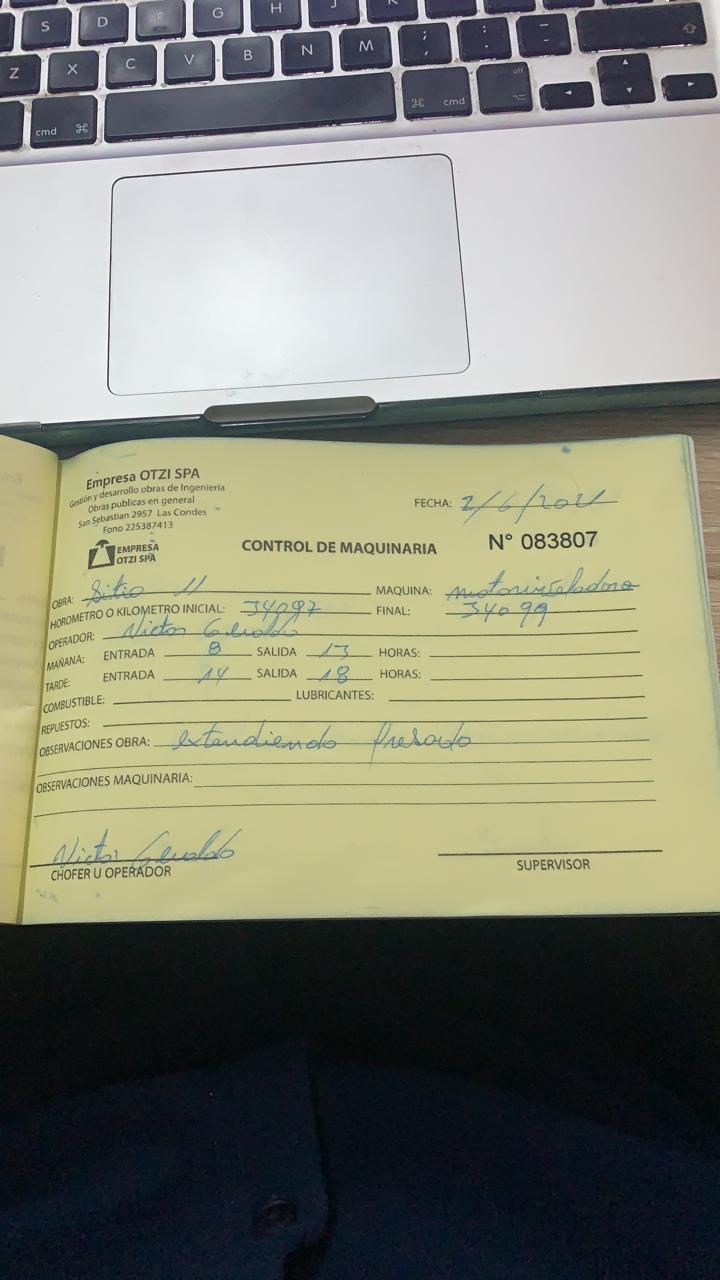 S D F G H J K L
Z X C V B N M ; , : . _ -
cmd ⌘ ⌘ cmd alt ⌥ ◄ ▲ ▼ ►
Empresa OTZI SPA
Gestión y desarrollo obras de Ingeniería
Obras publicas en general
San Sebastian 2957 Las Condes
Fono 225387413
FECHA: 2/6/2021
EMPRESA
OTZI SPA
CONTROL DE MAQUINARIA N° 083807
OBRA: Sitio 11 MAQUINA: motoniveladora
HOROMETRO O KILOMETRO INICIAL: 34097 FINAL: 34099
OPERADOR: Victor Geraldo
MAÑANA: ENTRADA 8 SALIDA 13 HORAS:
TARDE: ENTRADA 14 SALIDA 18 HORAS:
COMBUSTIBLE: LUBRICANTES:
REPUESTOS:
OBSERVACIONES OBRA: extendiendo fresado
OBSERVACIONES MAQUINARIA:
Victor Geraldo
CHOFER U OPERADOR SUPERVISOR